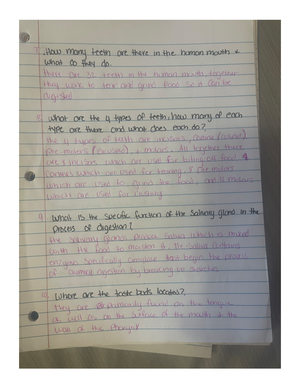 How many teeth are there in the human mouth &
what do they do.
there are 32 teeth in the human mouth, together
they work to tear and grind food so it can be
digested
What are the 4 types of teeth, how many of each
type are there and what does each do?
the 4 types of teeth are incisors, canine
premolars molars. All together there
are 8 incisors which are used for biting off food 4
canines which are used for tearing, 8 premolars
which are used to grind food, and 12 molars
which are used for
What is the specific function of the salivary gland in the
process of digestion?
the salivary glands saliva which is mixed
with the food to moisten it. the saliva contains
an specifically amylase that begin the process
of digestion by breaking
Where are the taste buds located?
they are found on the tongue
as well as on the surface of the mouth & the
of the